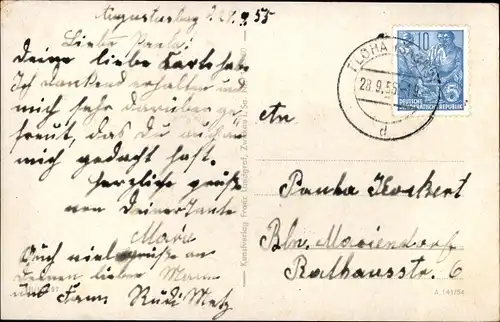 Augustusburg 27.9.55
Liebe Paula!
Deine liebe Karte habe
Ich dankend erhalten und
mich sehr darüber ge-
freut, das du auch an
mich gedacht hast.
Herzliche grüße
von Deiner Tante
Marie
Auch viele grüße an
Deinen lieben Mann
und Fam Rudi Metz
Kunstverlag Franz Landgraf, Zwickau i. Sa.
FLÖHA (SACHS)
28.9.55
d
10
DEUTSCHE
DEMOKRATISCHE REPUBLIK
An
Paula
Bln. Mariendorf
Rathausstr. 6
A 1411/54